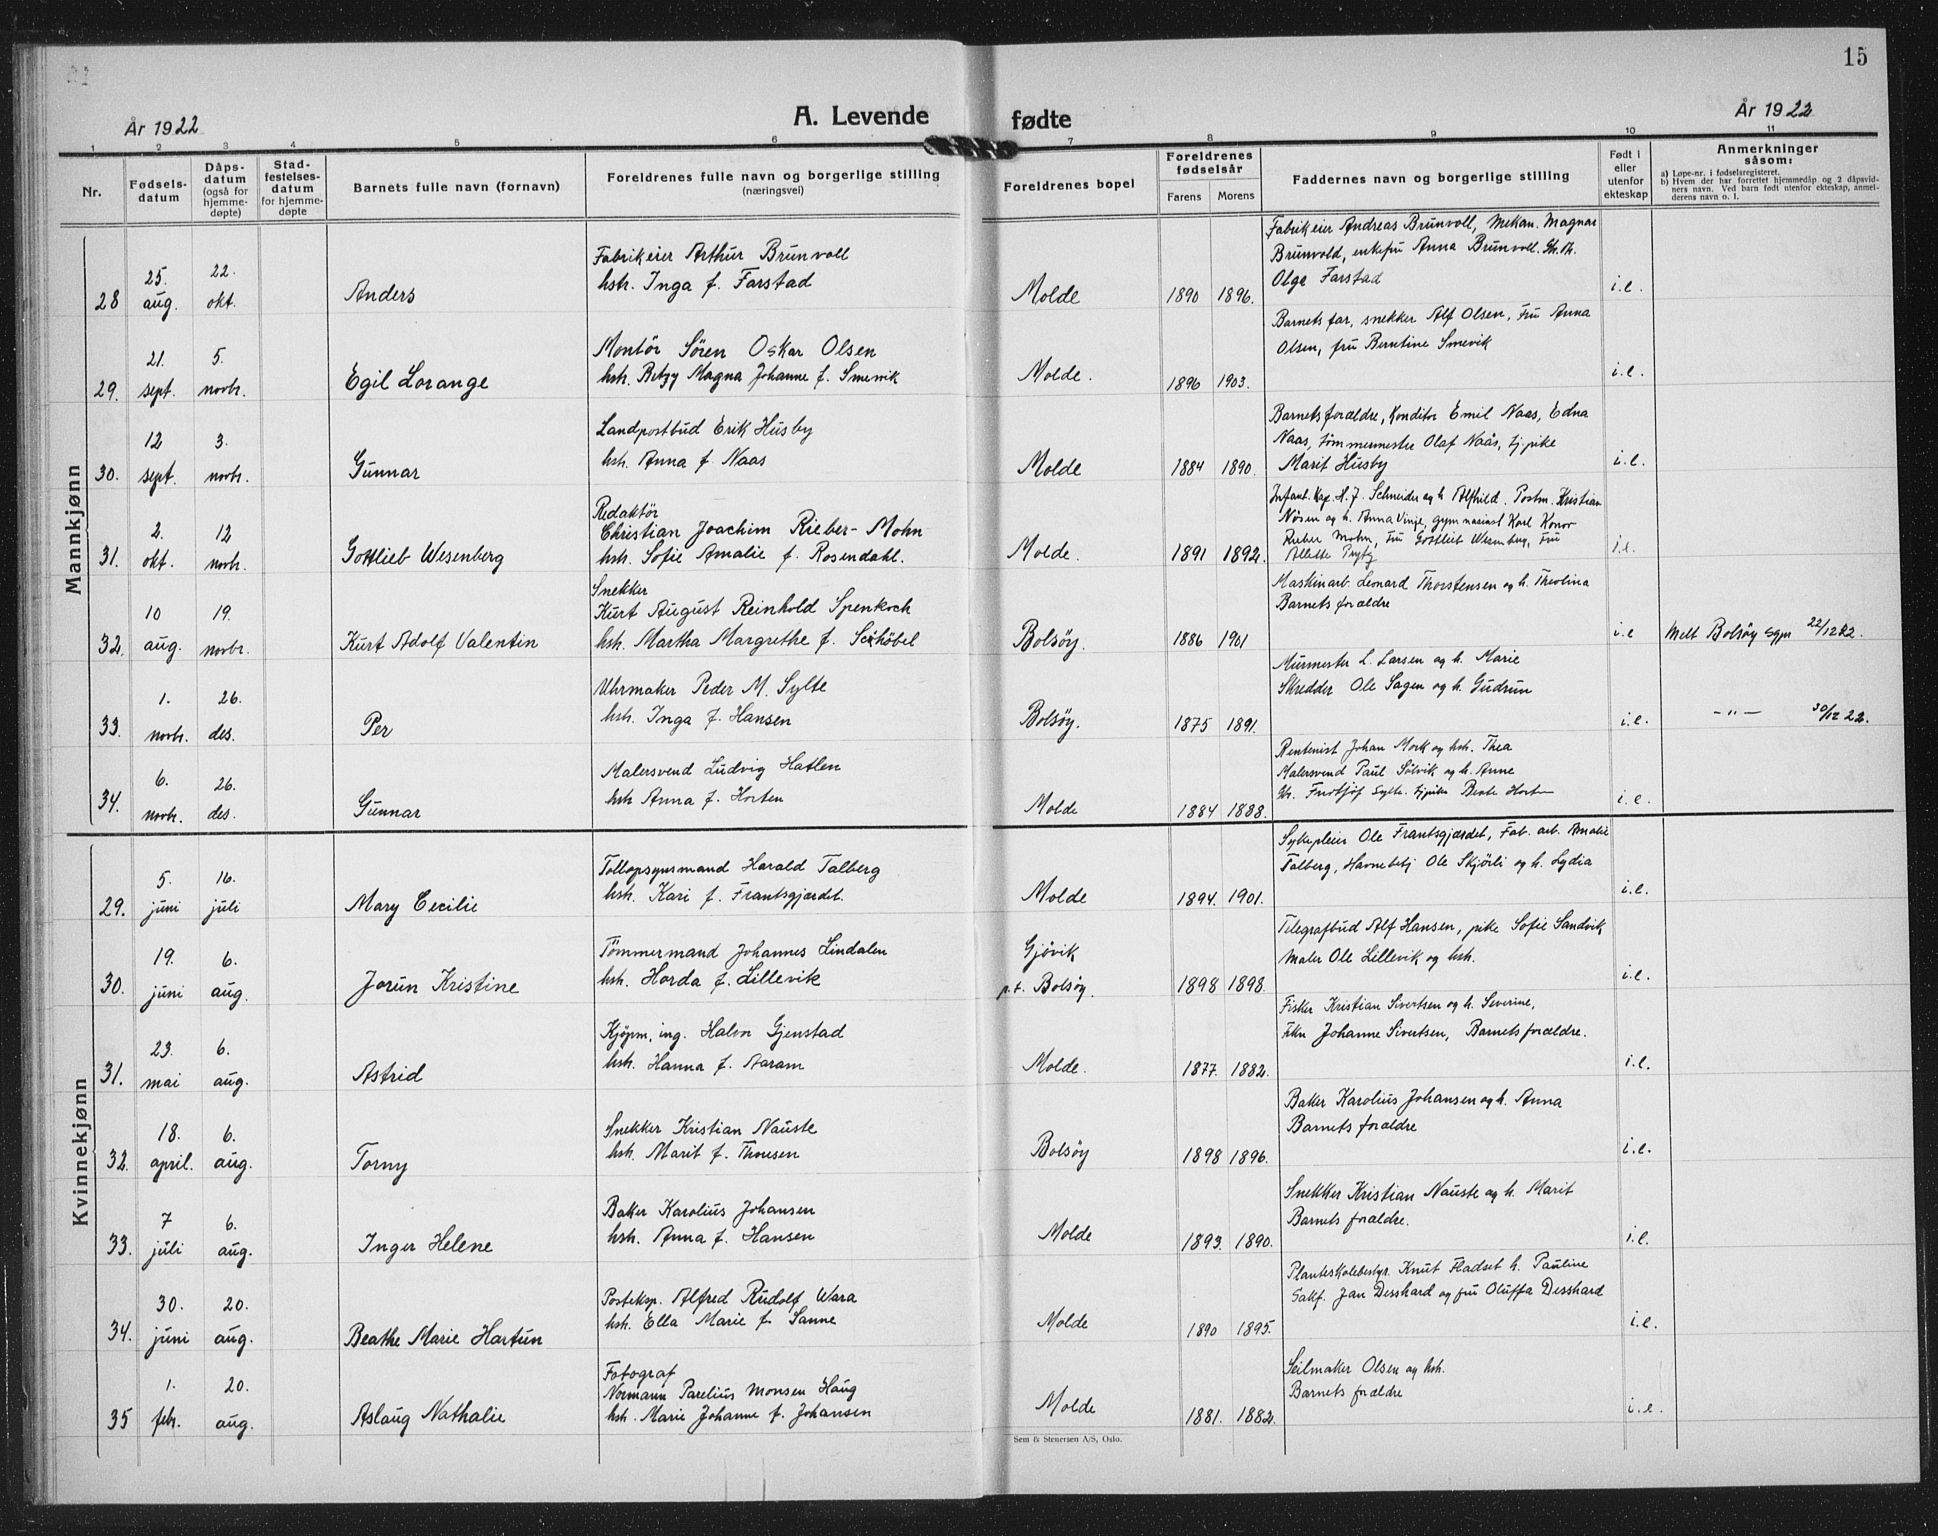 15
År 1922
A. Levende fødte
År 1922
1 2 3 4 5 6 7 8 9 10 11
Nr.
Fødsels-
datum
Dåps-
datum
(også for
hjemme-
døpte)
Stad-
festelses-
datum
for hjemme-
døpte
Barnets fulle navn (fornavn)
Foreldrenes fulle navn og borgerlige stilling
(næringsvei)
Foreldrenes bopel
Foreldrenes
fødselsår
Farens Morens
Faddernes navn og borgerlige stilling
Født i
eller
utenfor
ekteskap
Anmerkninger
såsom:
a) Løpe-nr. i fødselsregisteret.
b) Hvem der har forrettet hjemmedåp og 2 dåpsvid-
ners navn. Ved barn født utenfor ekteskap, anmel-
derens navn o. l.
Mannkjønn
28 25. aug. 22. okt. Anders
Fabrikeier Arthur Brunvoll
hstr. Inga f. Farstad
Molde 1890 1896.
Fabrikeier Andreas Brunvoll, mekan. Magnar
Brunvold, enkefru Anna Brunvoll.
Olge Farstad
i.e.
29. 21. sept. 5. novbr. Egil Lorange
Montør Søren Oskar Olsen
hstr. Betzy Magna Johanne f. Smevik
Molde. 1896 1903.
Barnets far, snekker Alf Olsen, Fru Anna
Olsen, fru Berntine Smevik
i.e.
30. 12 sept. 3. novbr. Gunnar
Landpostbud Erik Husby
hstr. Anna f. Naas
Molde 1884 1890.
Barnets forældre, Konditor Emil Naas, Edna
Naas, tømmermester Olaf Naås, tj.pike
Marit Husby
i.e.
31. 2. okt. 12 novbr. Gottlieb Wesenberg
Redaktør
Christian Joachim Rieber-Mohn
hstr. Sofie Amalie f. Rosendahl.
Molde. 1891 1892.
Infant. Kap. N. J. Schneider og h Alfhild. Postm. Kristian
Nørsen og h. Anna Vinje, gymnasiast Karl Konor
Rieber Mohn, Fru Gottlieb Wesenberg, Fru
i.e.
32. 10 aug. 19. novbr. Kurt Adolf Valentin
Snekker
Kurt August Reinhold Spenkoch
hstr. Martha Margrethe f. Schöbel
Bolsøy. 1886 1901
Maskinarb. Leonard Thorstensen og h. Theolina
Barnets forældre
i.e
Melt Bolsøy sgpr 22/12 22.
33. 1. novbr. 26. des. Per
Uhrmaker Peder M. Sylte
hstr. Inga f. Hansen
Bolsøy. 1875 1891.
Murmester L. Larsen og h. Marie
Skredder Ole Sagen og h. Gudrun
i.e.
– " – 30/12 22.
34. 6. novbr. 26. des. Gunnar
Malersvend Ludvig Hatlen
hstr Anna f. Horten
Molde 1884 1888.
Rentenist Johan Mork og hstr. Thea
Malersvend Paul Sølvik og h. Anne
Fridtjof Sylte. tjpike Beate Horten
i.e.
Kvinnekjønn
29. 5. juni 16. juli Mary Cecilie
Tollopsynsmand Harald Talberg
hstr. Kari f. Frantsgjærdet.
Molde 1894. 1901.
Sykepleier Ole Frantsgjærdet, Fab. arb. Amalie
Talberg, Havnebetj Ole Skjørli og h. Lydia
i.e.
30. 19. juni 6. aug. Jorun Kristine
Tømmermand Johannes Lindalen
hstr. Horda f. Lillevik
Gjøvik
p.t. Bolsøy. 1898 1898.
Telegrafbud Alf Hansen, pike Sofie Sandvik
Maler Ole Lillevik og hstr.
i.e.
31. 23. mai 6. aug. Astrid
Kjøpm, ing. Halvor Gjenstad
hstr. Hanna f. Aaram
Molde. 1877. 1882.
Fisker Kristian Sivertsen og h. Severine,
Frkn Johanne Sivertsen, Barnets forældre.
i.e.
32. 18. april. 6. aug. Torny
Snekker Kristian Nauste
hstr. Marit f. Thoresen
Bolsøy 1898 1896.
Baker Karolius Johansen og h. Anna
Barnets forældre
i.e.
33. 7 juli 6. aug. Inger Helene
Baker Karolius Johansen
hstr. Anna f. Hansen
Molde 1893. 1890.
Snekker Kristian Nauste og h. Marit
Barnets forældre.
i.e.
34. 30. juni 20. aug. Beathe Marie Hartun
Posteksp. Alfred Rudolf Wara
hstr. Ella Marie f. Sanne
Molde 1890 1895.
Planteskolebestyr. Knut Fladset h. Pauline
Sakf. Jan Desshard og fru Oluffa Desshard
i.e.
35 1. febr. 20. aug. Aslaug Nathalie
Fotograf
Normann Parelius Monsen Haug
hstr. Marie Johanne f. Johansen
Molde 1881. 1882.
Seilmaker Olsen og hstr.
Barnets forældre
i.e.
Sem & Stenersen A/S, Oslo.